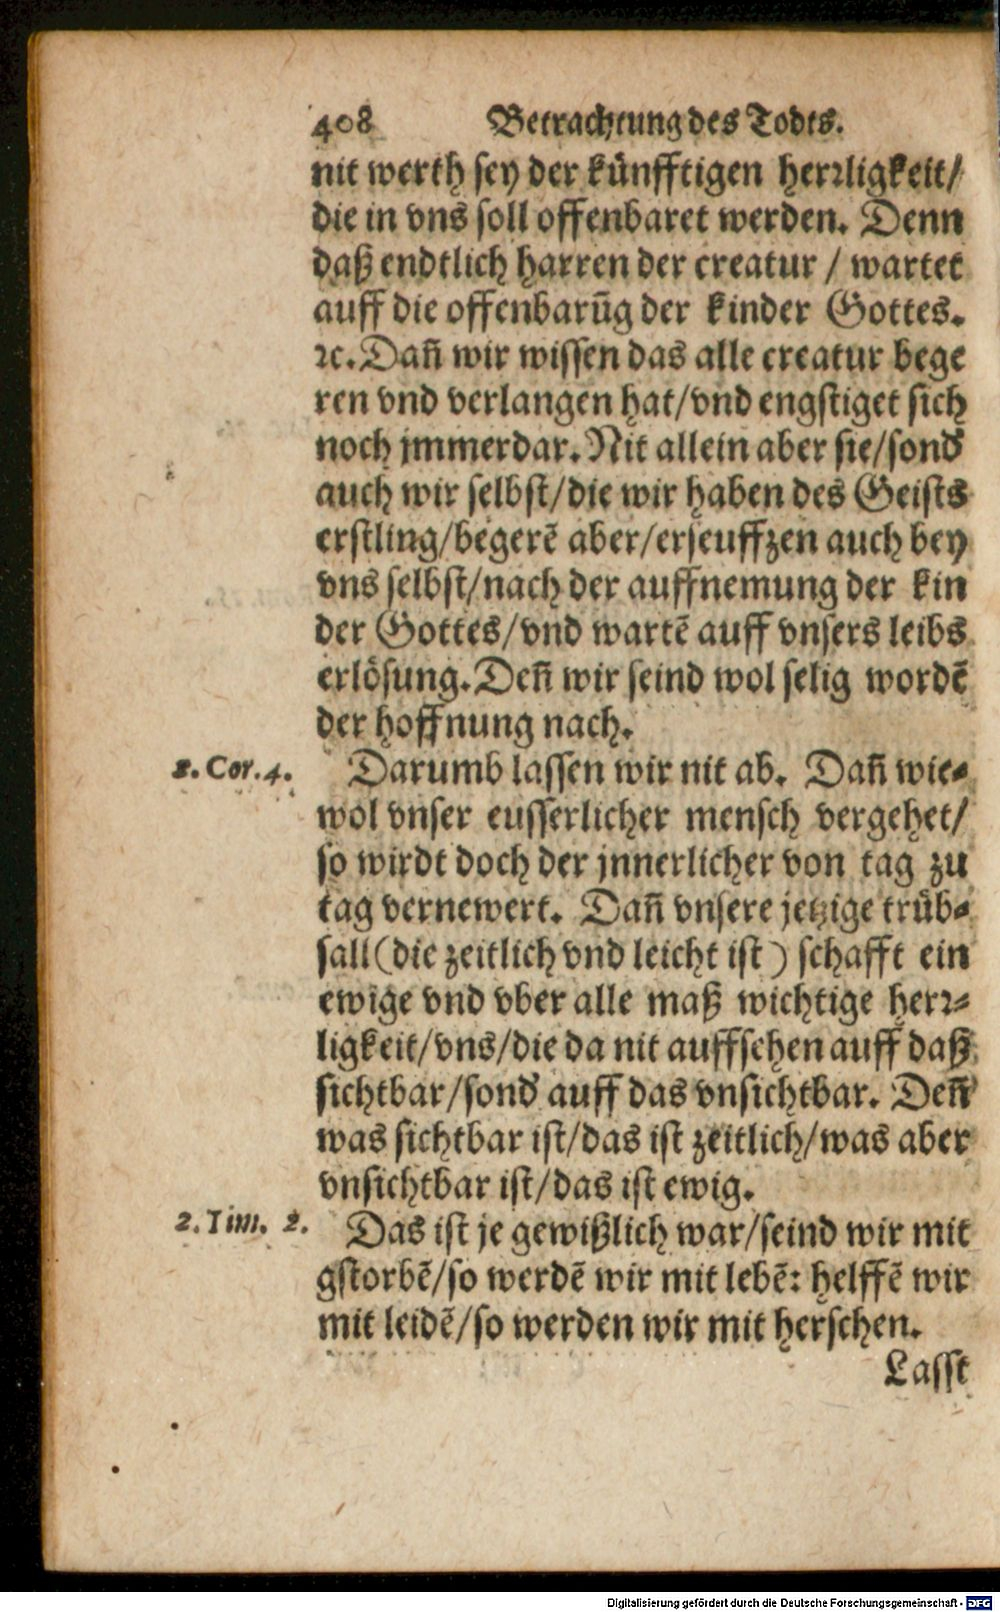 408 Betrachtung des Todts.
nit werth sey der künfftigen herꝛligkeit/
die in vns soll offenbaret werden. Denn
daß endtlich harren der creatur / wartet
auff die offenbarūg der kinder Gottes.
ꝛc. Dañ wir wissen das alle creatur bege
ren vnd verlangen hat/vnd engstiget sich
noch jmmerdar. Nit allein aber sie/sond'
auch wir selbst/die wir haben des Geists
erstling/begerē aber/erseuffzen auch bey
vns selbst/nach der auffnemung der kin
der Gottes/vnd wartē auff vnsers leibs
erlösung. Deñ wir seind wol selig wordē
der hoffnung nach.
2. Cor. 4. Darumb lassen wir nit ab. Dañ wie-
wol vnser eusserlicher mensch vergehet/
so wirdt doch der jnnerlicher von tag zu
tag vernewert. Dañ vnsere jetzige trüb-
sall (die zeitlich vnd leicht ist) schafft ein
ewige vnd vber alle maß wichtige herꝛ-
ligkeit/vns/die da nit auffsehen auff daß
sichtbar/sond' auff das vnsichtbar. Deñ
was sichtbar ist/das ist zeitlich/was aber
vnsichtbar ist/das ist ewig.
2. Tim. 2. Das ist je gewißlich war/seind wir mit
gstorbē/so werdē wir mit lebē: helffē wir
mit leidē/so werden wir mit herschen.
Lasst
Digitalisierung gefördert durch die Deutsche Forschungsgemeinschaft - DFG